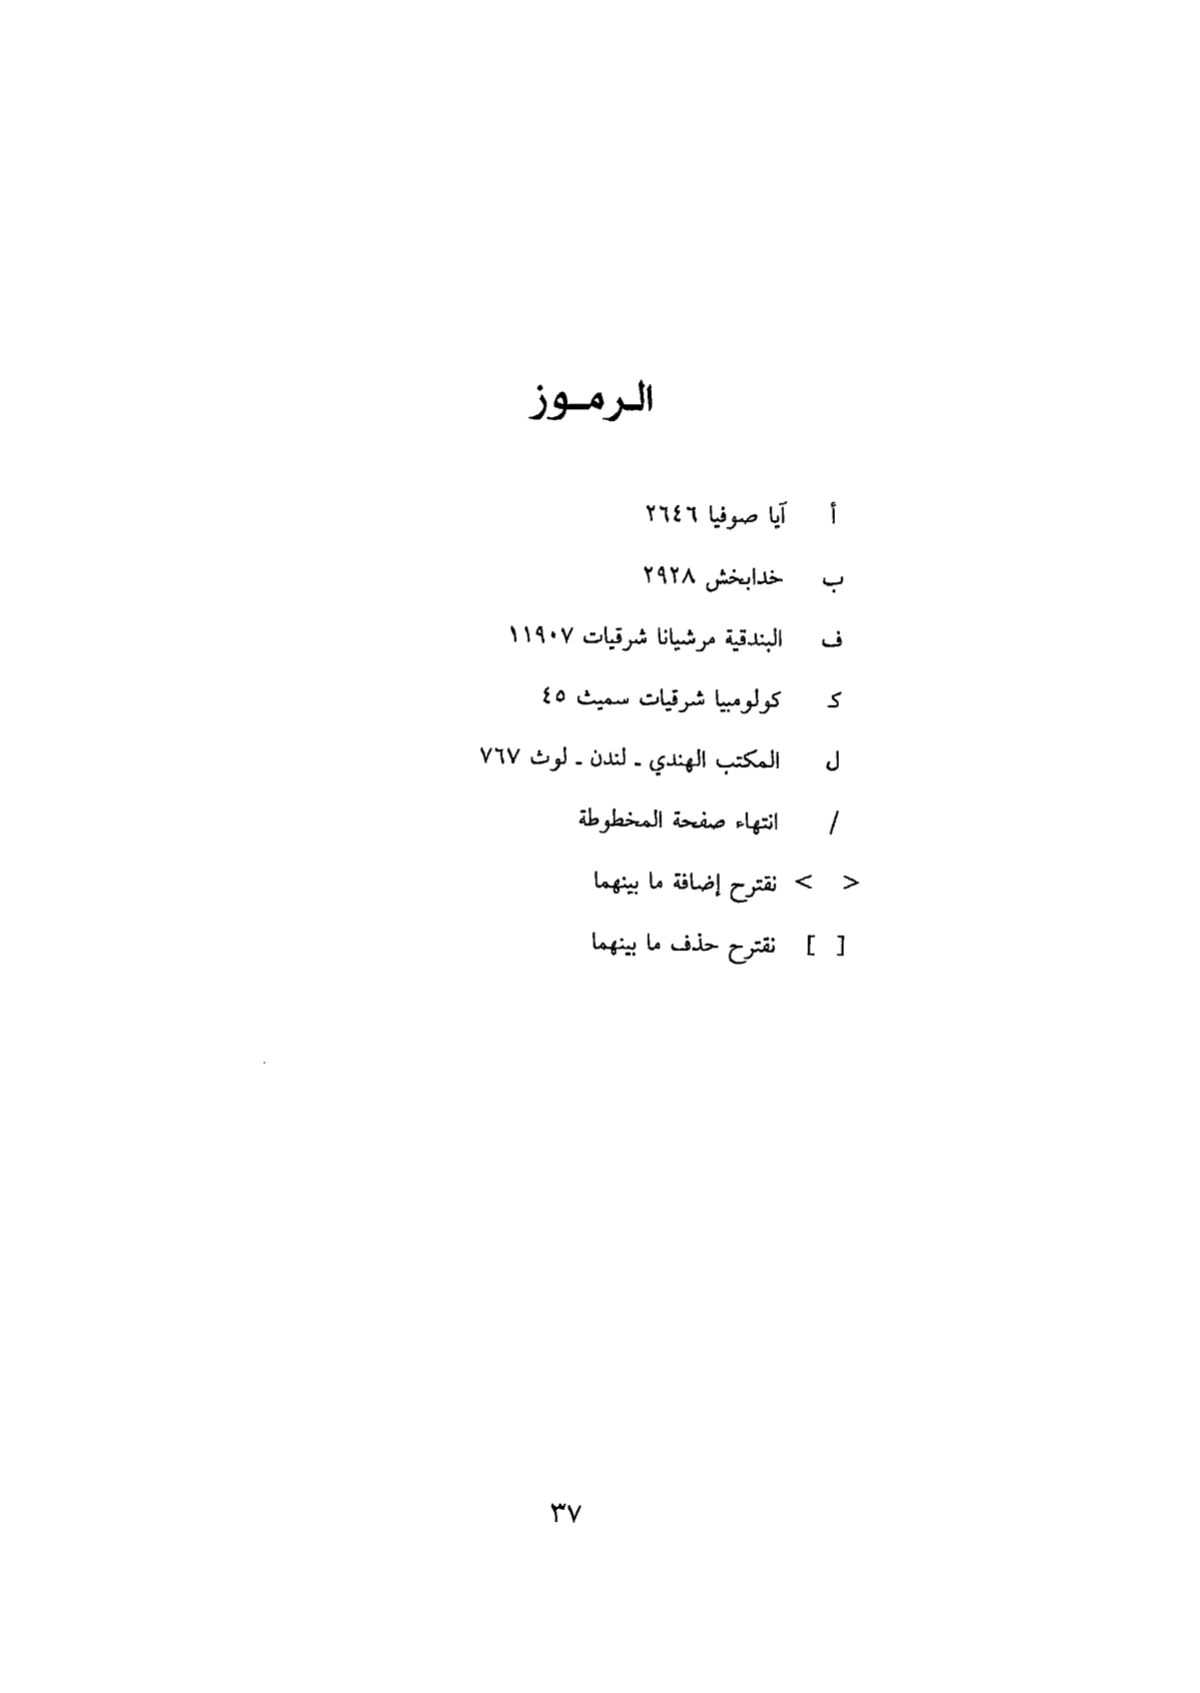 الرمـوز
أ آيا صوفيا ٢٦٤٦
ب خدابخش ٢٩٢٨
ف البندقية مرشيانا شرقيات ١١٩٠٧
كـ كولومبيا شرقيات سميث ٤٥
ل المكتب الهندي ـ لندن ـ لوث ٧٦٧
/ انتهاء صفحة المخطوطة
< > نقترح إضافة ما بينهما
[ ] نقترح حذف ما بينهما
٣٧